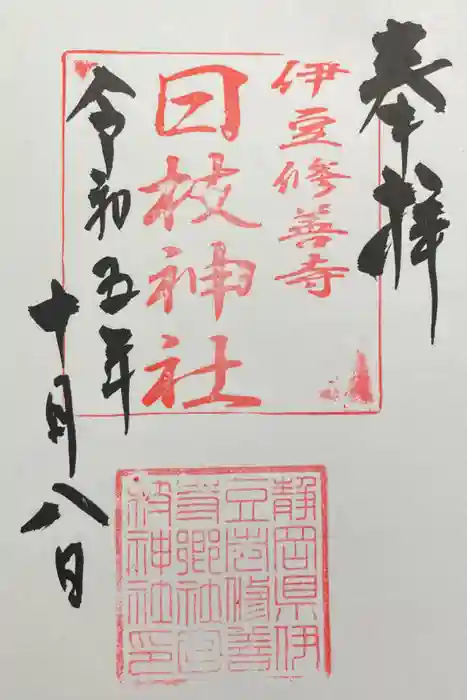 奉拝
伊豆修善寺
日枝神社
令和五年
十月八日
静岡県伊
豆志修善
寺郷社日
枝神社印